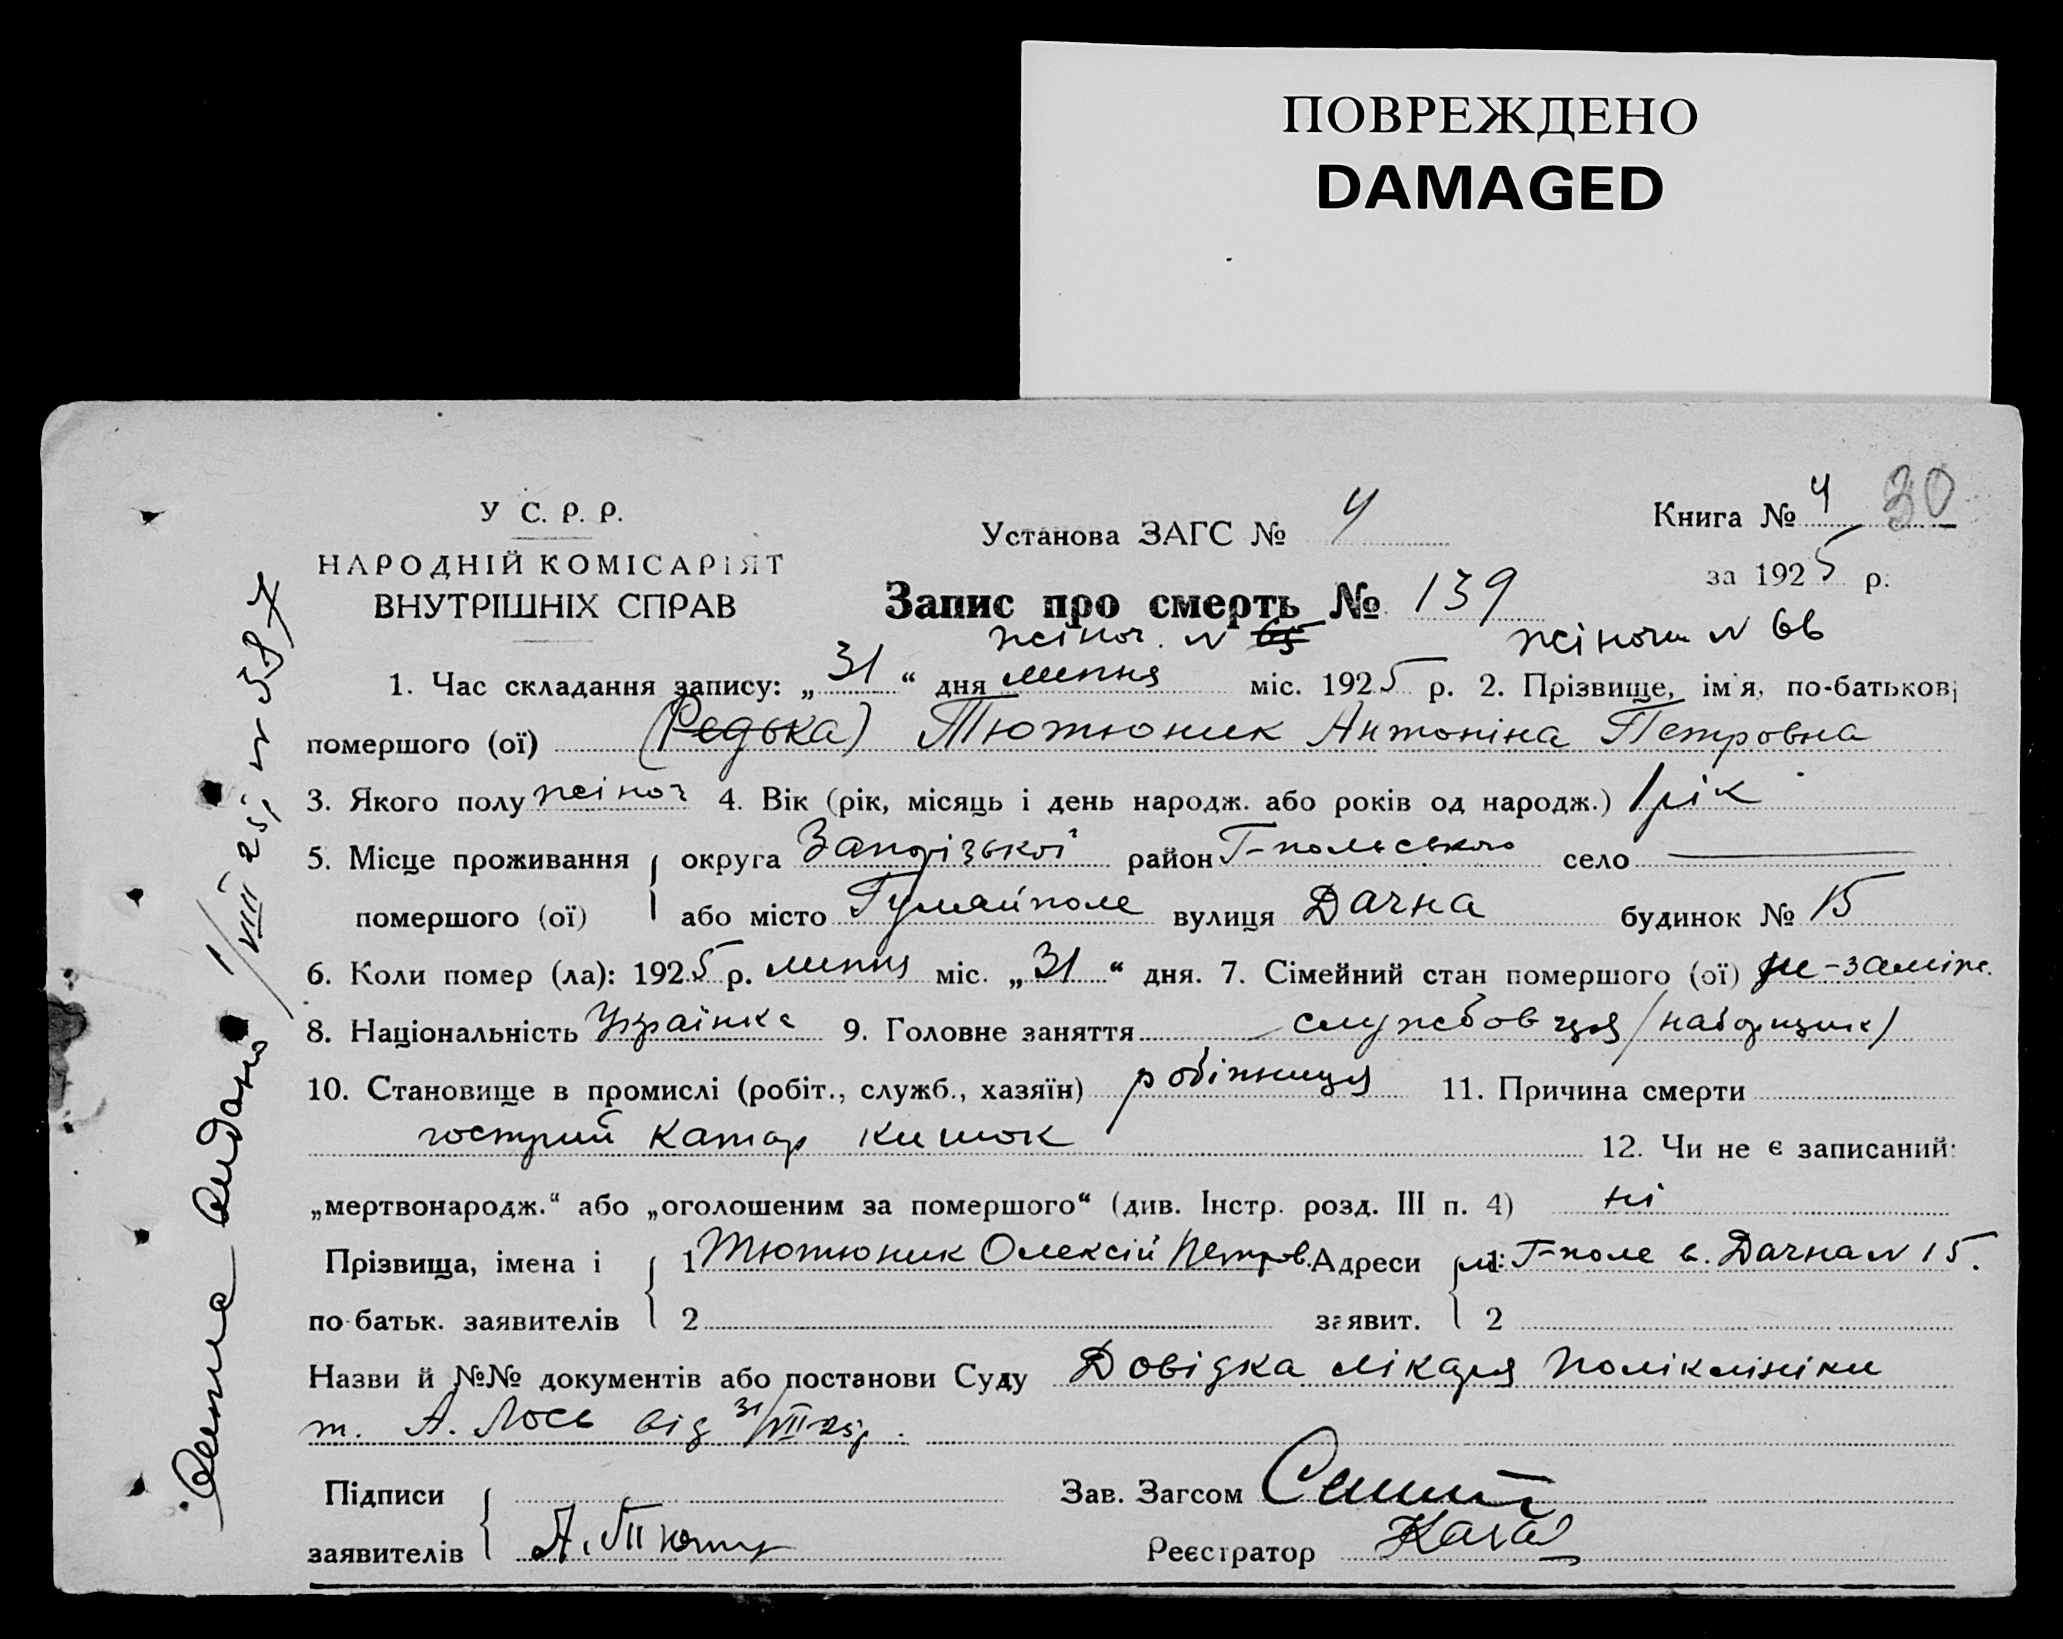 ПОВРЕЖДЕНО
DAMAGED
У С. Р. Р.
НАРОДНІЙ КОМІСАРІЯТ
ВНУТРІШНІХ СПРАВ
Установа ЗАГС № 4
Книга № 4 30
за 1925 р.
Запис про смерть № 139
жіноч. N 65 жіночи N 66
1. Час складання запису: „31“ дня липня міс. 1925 р. 2. Прізвище, ім'я, по-батькові
помершого (ої) (Редька) Тютюник Антоніна Петровна
3. Якого полу жіноч 4. Вік (рік, місяць і день народж. або років од народж.) 1 рік
5. Місце проживання округа Запорізької район Г-польського село
помершого (ої) або місто Гуляйполе вулиця Дачна будинок № 15
6. Коли помер (ла): 1925 р. липня міс. „31“ дня. 7. Сімейний стан помершого (ої) не-заміж.
8. Національність Українка 9. Головне заняття службовця (наборщик)
10. Становище в промислі (робіт., служб., хазяїн) робітниця 11. Причина смерти
гострий катар кишок 12. Чи не є записаний:
„мертвонародж.“ або „оголошеним за помершого“ (див. Інстр. розд. III п. 4) ні
Прізвища, імена і 1 Тютюник Олексій Петров. Адреси 1 Г-поле в. Дачна N 15.
по-батьк. заявителів 2 заявит. 2
Назви й №№ документів або постанови Суду Довідка лікаря поліклініки
т. А. Лось від 31/VII-25р.
Підписи Зав. Загсом
заявителів А. Тютю Реєстратор
видано 1/VIII 25р. N 587